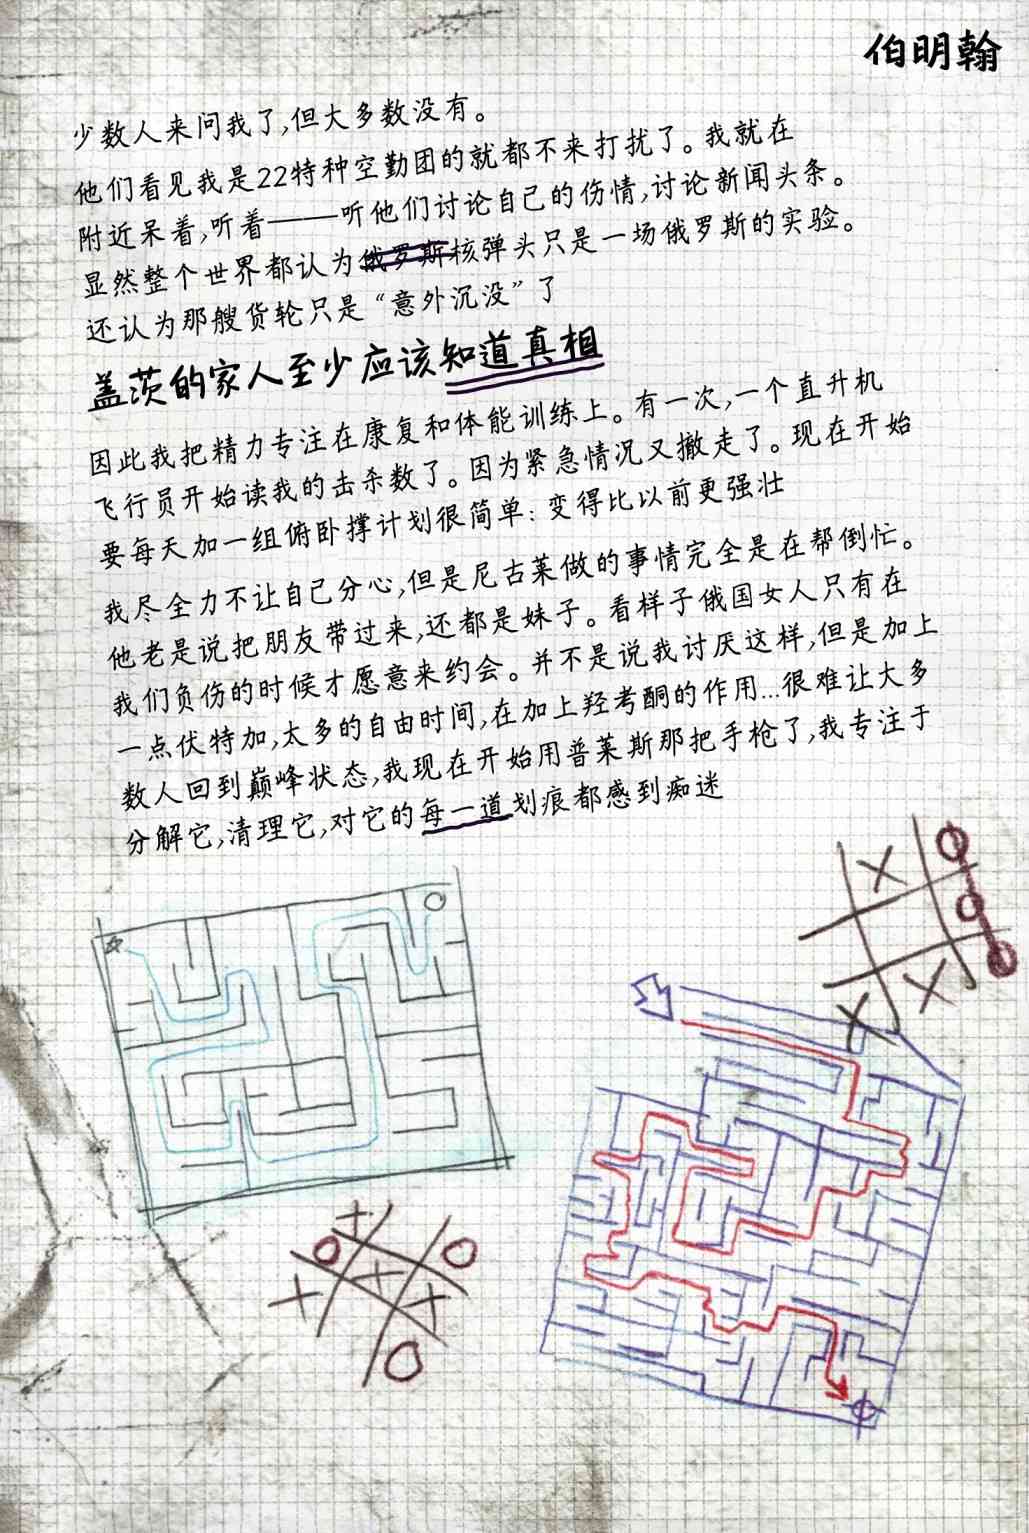 伯明翰
少数人来问我了,但大多数没有。
他们看见我是22特种空勤团的就都不来打扰了。我就在
附近呆着,听着——听他们讨论自己的伤情,讨论新闻头条。
显然整个世界都认为俄罗斯核弹头只是一场俄罗斯的实验。
还认为那艘货轮只是“意外沉没”了
盖茨的家人至少应该知道真相
因此我把精力专注在康复和体能训练上。有一次,一个直升机
飞行员开始读我的击杀数了。因为紧急情况又撤走了。现在开始
要每天加一组俯卧撑计划很简单:变得比以前更强壮
我尽全力不让自己分心,但是尼古莱做的事情完全是在帮倒忙。
他老是说把朋友带过来,还都是妹子。看样子俄国女人只有在
我们负伤的时候才愿意来约会。并不是说我讨厌这样,但是加上
一点伏特加,太多的自由时间,在加上羟考酮的作用...很难让大多
数人回到巅峰状态,我现在开始用普莱斯那把手枪了,我专注于
分解它,清理它,对它的每一道划痕都感到痴迷